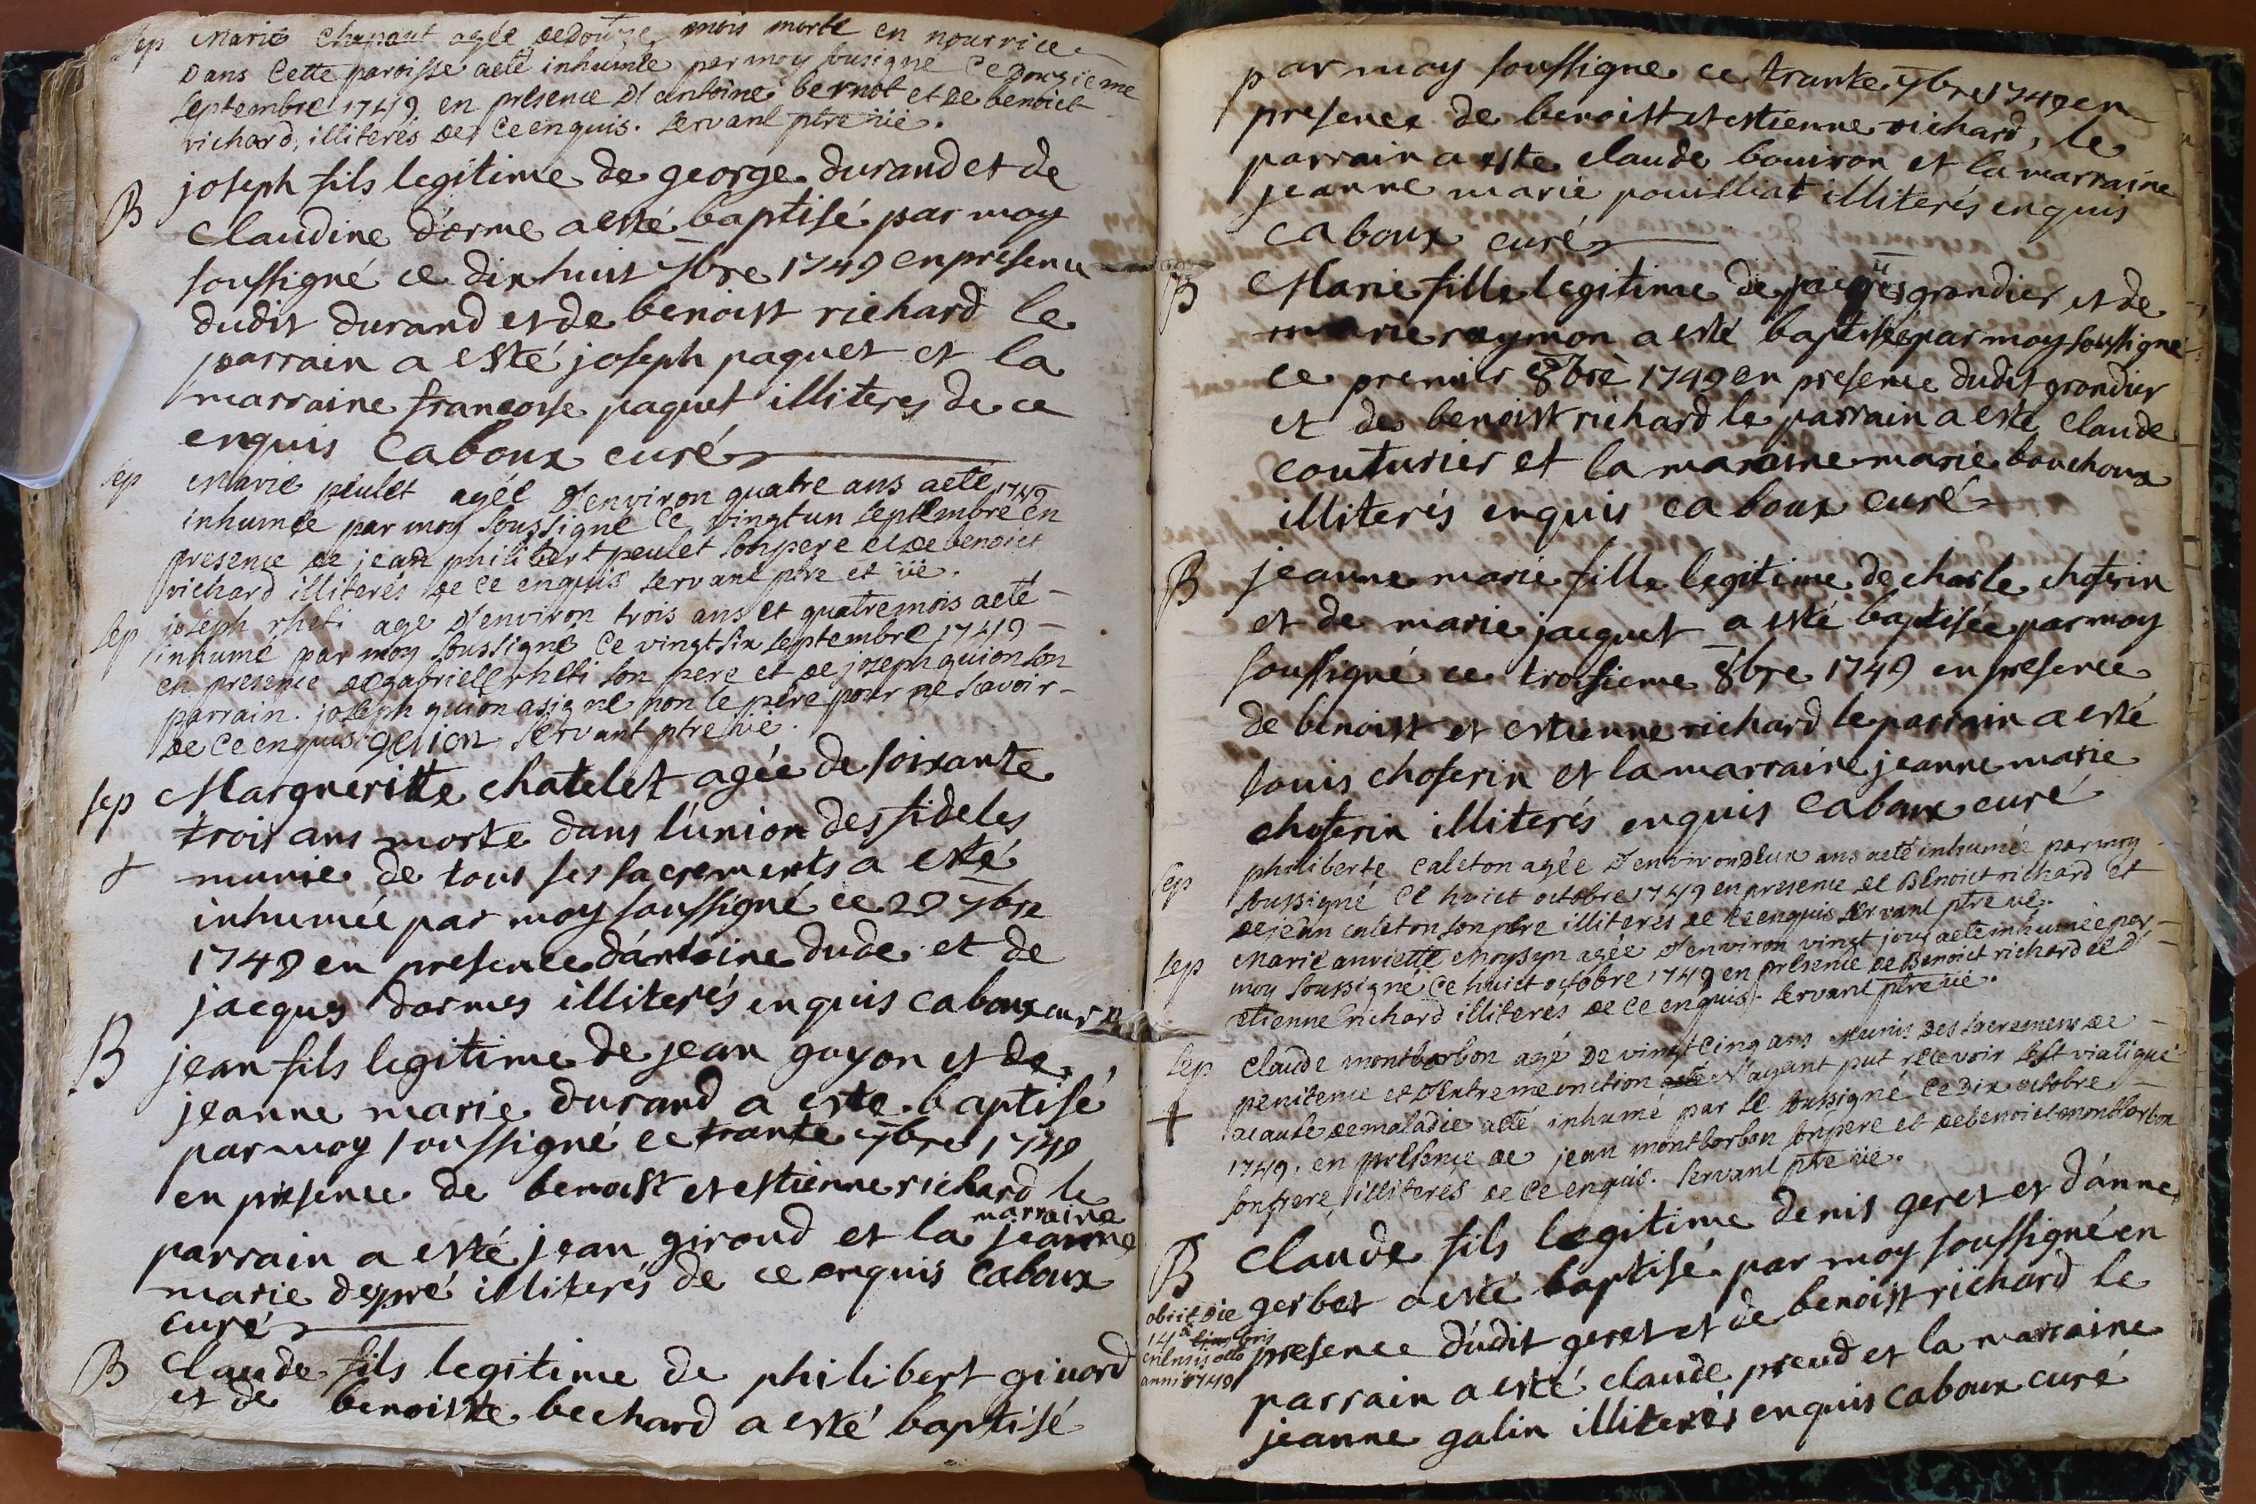 Sep Marie chapaut agée de douze mois morte en nourrice
dans cette paroisse aeté inhumée par moy sousigné ce douzieme
septembre 1749 en presence d'antoine bernot et de benoict
richard, illiterés de ce enquis. servant ptre vic.
B joseph fils legitime de george durand et de
claudine dorme a esté baptisé par moy
soussigné ce dix huit 7bre 1749 en presence
dudit durand et de benoist richard le
parrain a esté joseph paquet et la
marraine francoise paquet illiteres de ce
enquis caboux curé
sep Marie peulet agée d'environ quatre ans aeté
inhumée par moy soussigné ce vingt un septembre 1749 en
presence de jean philibert peulet son pere et de benoict
richard illiterés de ce enquis servant ptre et vic.
sep joseph rheti age d'environ trois ans et quatre mois aeté
inhumé par moy soussigné ce vingt six septembre 1749
en presence de gabriel rheti son pere et de joseph guion son
parrain. joseph guion a signé non le père pour ne scavoir
de ce enquis. geiion servant ptre vic.
sep Margueritte chatelet agée de soixante
trois ans morte dans l'union des fideles
munie de tous ses sacrements a esté
inhumée par moy soussigné ce 29 7bre
1749 en presence d'antoine dude et de
jacques dormes illiterés enquis caboux curé
B jean fils legitime de jean guyon et de
jeanne marie durand a este baptisé
par moy soussigné ce trante 7bre 1749
en presence de benoist et estienne richard le
parrain a esté jean giroud et la marraine jeanne
marie depré illiterés de ce enquis caboux
curé
B Claude fils legitime de philibert givord
et de benoiste bechard a esté baptisé
par moy soussigne ce trante 7bre 1749 en
presence de benoist et estienne richard, le
parrain a este claude bouiron et la marraine
jeanne marie pouilliat illiterés enquis
caboux curé
B Marie fille legitime de jacques grandier et de
marie raymon a esté baptisée par moy soussigné
ce premier 8bre 1749 en presence dudit grandier
et de benoist richard le parrain a esté claude
couturier et la maraine marie bouchoux
illiterés enquis caboux curé
B jeanne marie fille legitime de charle choserin
et de marie jacquet a esté baptisée par moy
soussigné ce troisieme 8bre 1749 en presence
de benoist et estienne richard le parrain a esté
louis choserin et la marraine jeanne marie
choserin illiterés enquis caboux curé
sep philiberte caleton agée d'environ deux ans aeté inhumée par moy
soussigné ce huict octobre 1749 en presence de Benoict richard et
de jean caleton son pere illiterés de ce enquis servant ptre vic.
sep Marie anriette moysyn agée d'environ vingt jour aeté inhumée par
moy soussigné ce huict octobre 1749 en presence de Benoict richard et d'
etienne richard illiteres de ce enquis. servant ptre vic.
sep claude montbarbon agé de vingt cinq ans munis des sacremens de
penitence et d'extreme onction n'ayant put recevoir le st viatique
a cause de maladie aeté inhumé par le soussigné ce dix octobre
1749. en presence de jean montbarbon son pere et de benoict montbarbon
son frere illiterés de ce enquis. servant ptre vic.
B claude fils legitime denis geret et d'anne
gerbet a esté baptisé par moy soussigné en
presence dudit geret et de benoist richard le
parrain a esté claude preud et la marraine
jeanne galin illiterés enquis caboux curé
obiit die
14a
mensis octobris
anni 1749